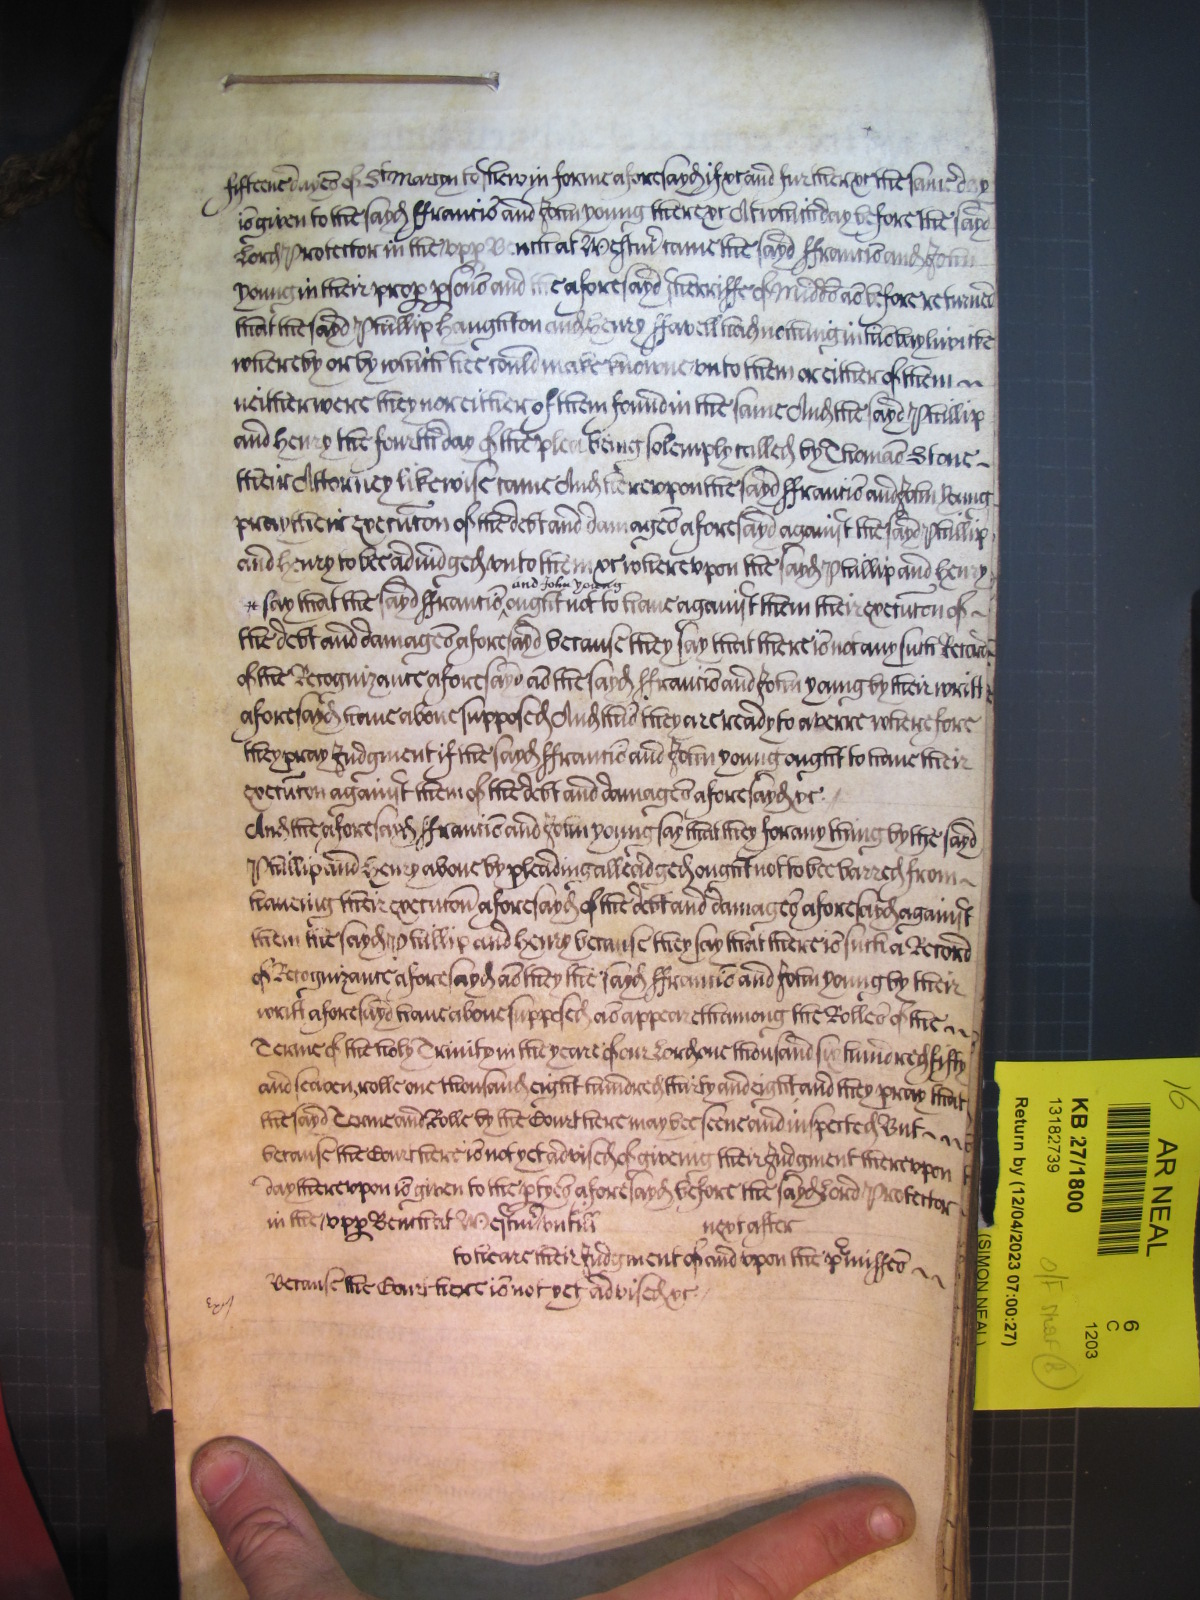 fifteene dayes of St Martin to shew in forme aforesayd if &c and further &c the same day
is given to the sayd ffrancis and John young there &c At which day before the sayd
Lord Protector in the upp Bench at Westmr came the sayd ffrancis and John
young in their prop psons and the aforesayd sherriffe of Midds as before returned
that the sayd Phillip Laughton and Henry ffavell had nothing in his baylivicke
whereby or by which hee could make knowne unto them or either of them
neither were they nor either of them found in the same And the sayd Phillip
and Henry the fourth day of the plea being solemply called by Thomas Stone
their Attorney likewise came And thereupon the sayd ffrancis and John Young
pray their execucon of the debt and damages aforesayd against the sayd Phillip
and Henry to bee adiudged unto them &c whereupon the sayd Phillip and Henry
and John young
say that the sayd ffrancis ought not to have against them their execucon of
the debt and damages aforesayd because they say that there is not any such Record
of the Recognizance aforesayd as the sayd ffrancis and John young by their writt
aforesayd have above supposed And this they are ready to averre wherefore
they pray Judgment if the sayd ffrancis and John young ought to have their
execucon against them of the debt and damages aforesayd &c.
And the aforesayd ffrancis and John young say that they for any thing by the sayd
Phillip and Henry above by pleading alleadged ought not to bee barred from
haveing their execucon aforesayd of the debt and damages aforesayd against
them the sayd Phillip and Henry because they say that there is such a Record
of Recognizance aforesayd as they the sayd ffrancis and John young by their
writt aforesayd have above supposed as appeareth among the Rolles of the
Terme of the holy Trinity in the yeare of our Lord one thousand six hundred fifty
and seaven, rolle one thousand eight hundred thirty and eight and they pray that
the sayd Terme and Rolle by the Court here may bee seene and inspected But
because the Court here is not yet advised of giveing their Judgment thereupon
day thereupon is given to the ptyes aforesayd before the sayd Lord Protector
in the upp Bench at Westmr untill next after
to heare their Judgment of and upon the pmisses
Because the Court here is not yet advised &c.
16
AR NEAL
KB 27/1800
13182739
6
C
1203
Return by (12/04/2023 07:00:27)
(SIMON NEAL)